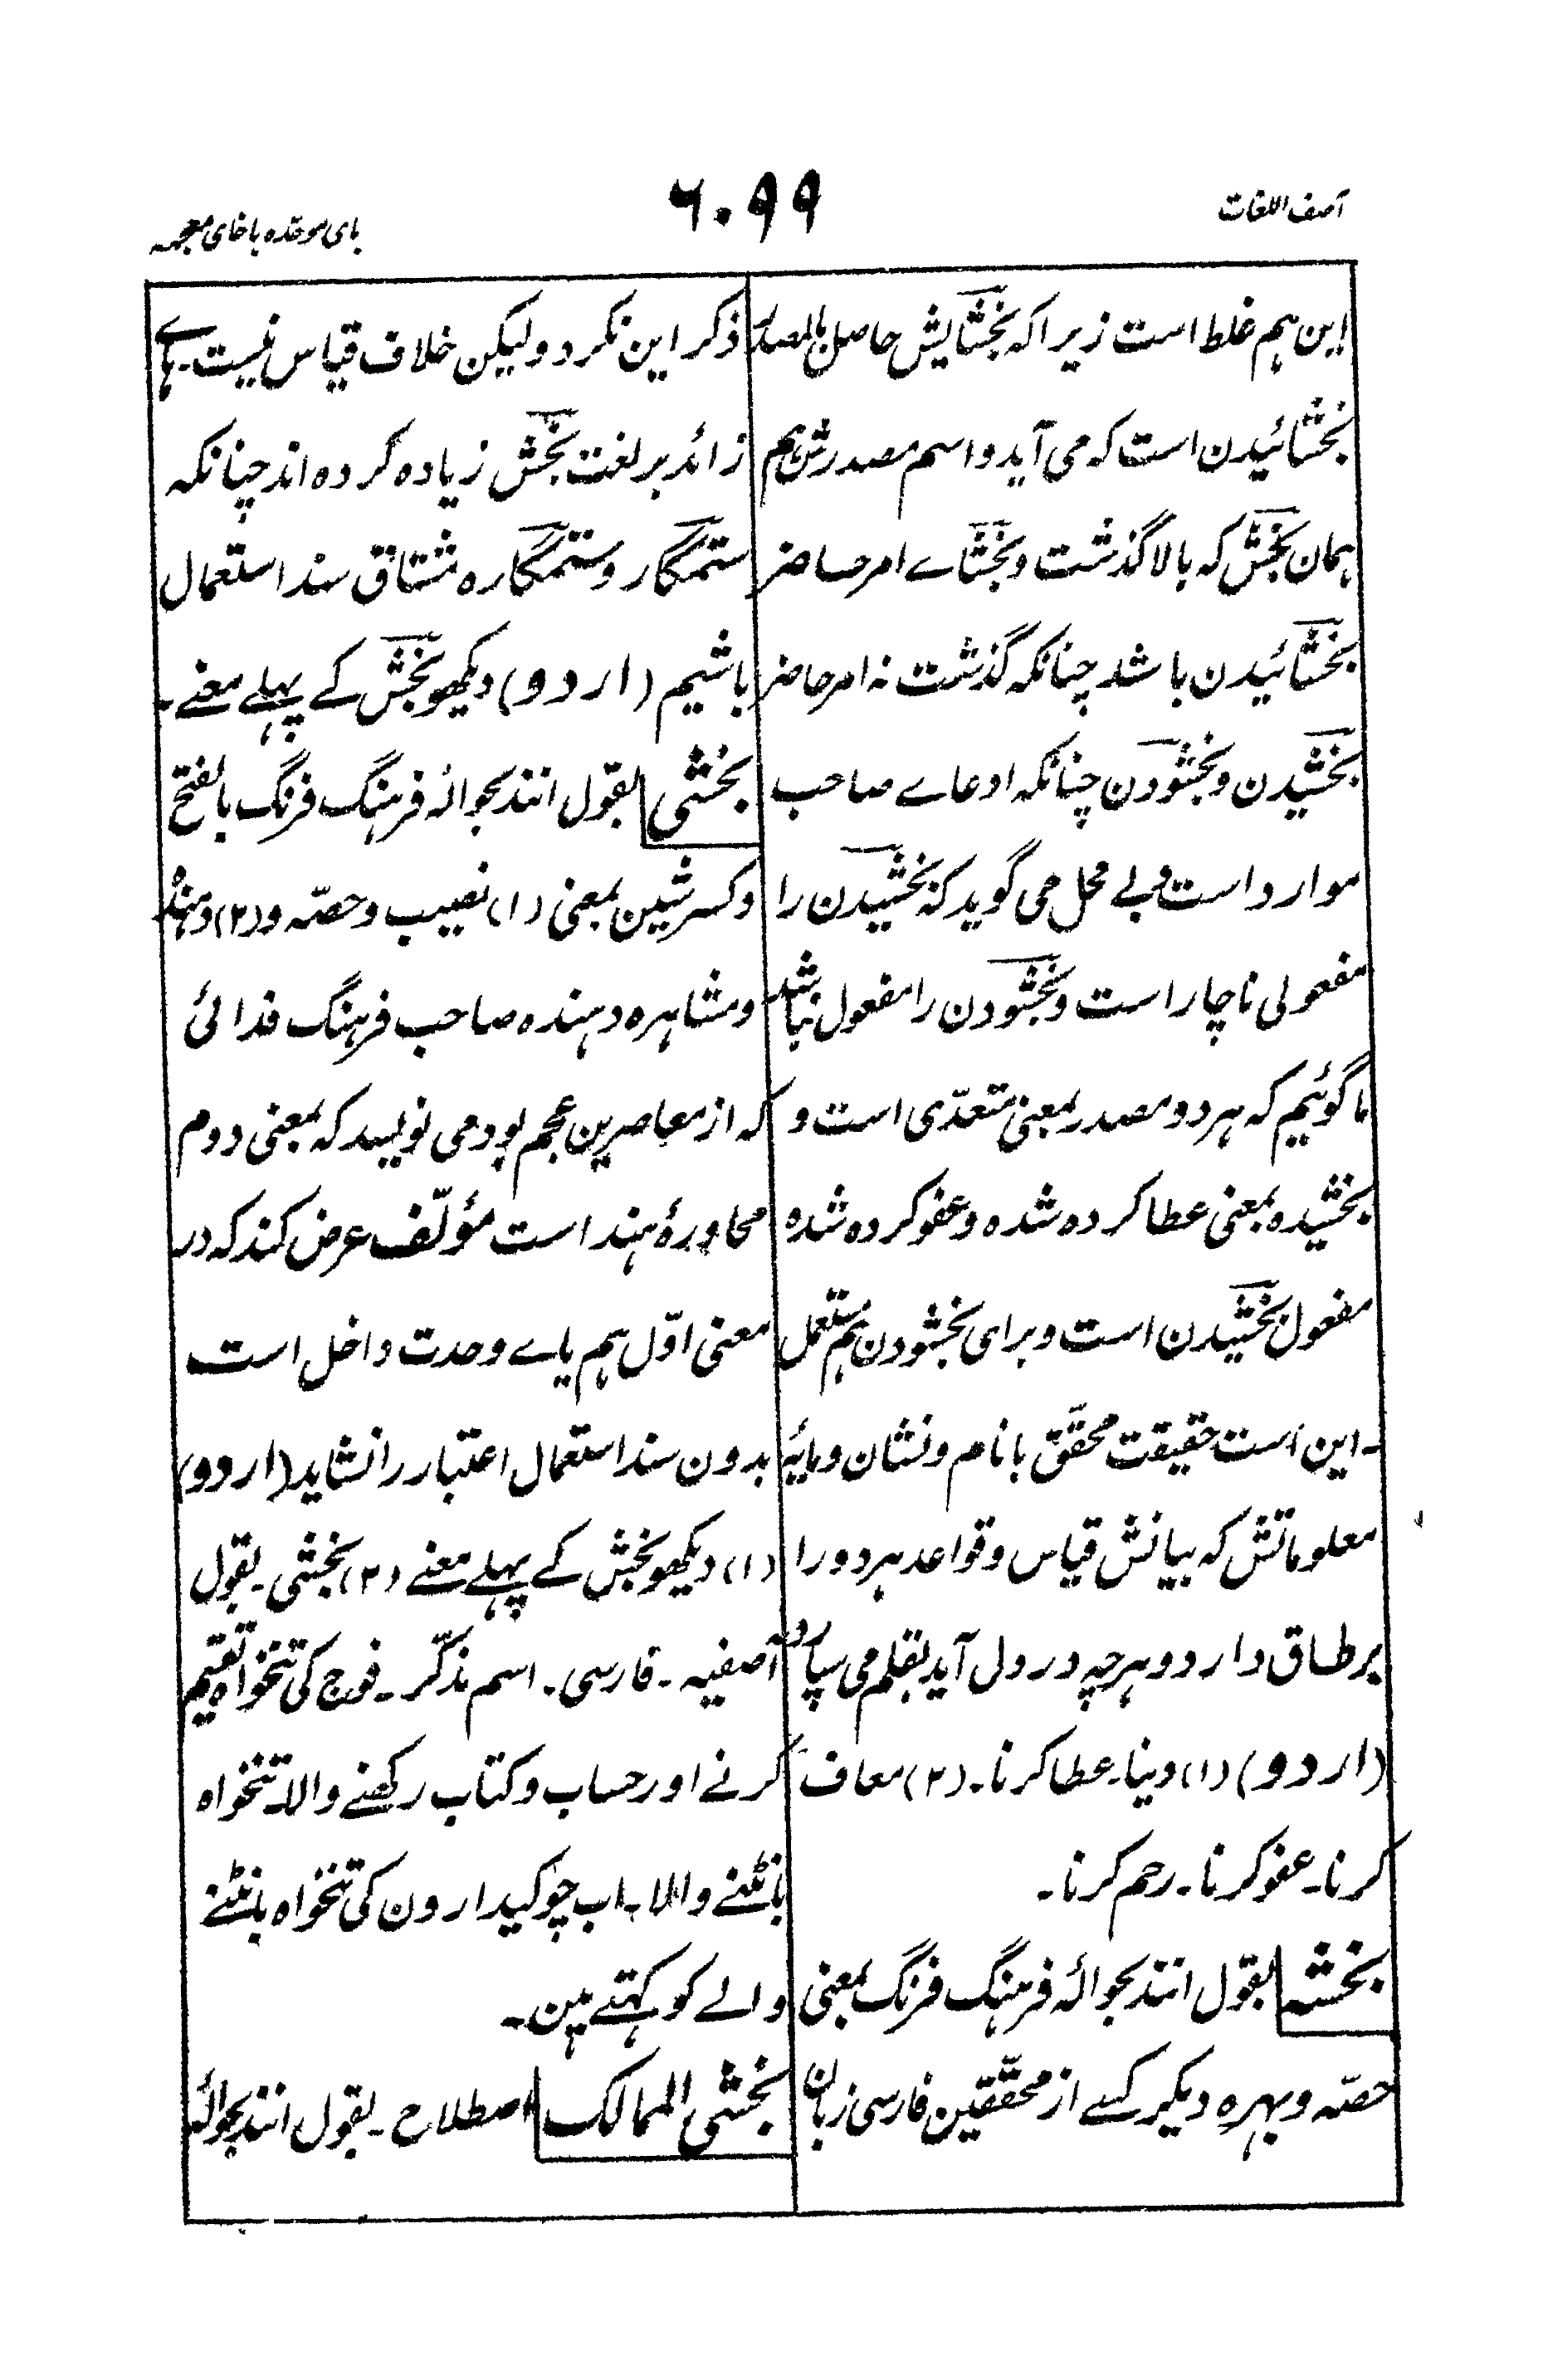 آصف اللغات
۶۰۹۹
بای موحده با خای معجمه
این ہم غلط است زیرا کہ بخشایش حاصل بالمصدر
بخشائیدن است کہ می آید و اسم مصدرش ہم
ہمان بخش کہ بالا گذشت و بخشاے امر حاضر
بخشائیدن باشد چنانکہ گذشت نہ امر حاضر
بخشیدن و بخشودن چنانکہ ادعاے صاحب
موارد است و بے محل می گوید کہ بخشیدن را
مفعولی ناچار است و بخشودن را مفعول نباشد
ما گوئیم کہ ہر دو مصدر بمعنی متعدّی است و
بخشیدہ بمعنی عطا کردہ شدہ و عفو کردہ شدہ
مفعول بخشیدن است و برای بخشودن ہم مستعمل
۔ این است حقیقت محقّق با نام و نشان و مایۂ
معلوماتش کہ بیانش قیاس و قواعد ہر دو را
بر طاق دارد و ہرچہ در دل آید بقلم می سپارد
(اردو) (۱) دینا۔ عطا کرنا۔ (۲) معاف
کرنا۔ عفو کرنا۔ رحم کرنا۔
بخشہ بقول انند بحوالۂ فرہنگ فرنگ بمعنی
حصّہ و بہرہ دیگر کسے از محقّقین فارسی زبان
ذکر این نکرد ولیکن خلاف قیاس نیست۔ ہاے
زائد بر لغت بخش زیادہ کردہ اند چنانکہ
ستمگار و ستمگارہ مشتاق سند استعمال
باشیم (اردو) دیکھو بخش کے پہلے معنے۔
بخشی بقول انند بحوالۂ فرہنگ فرنگ بالفتح
و کسر شین بمعنی (۱) نصیب و حصّہ و (۲) دہندہ
و مشاہرہ دہندہ صاحب فرہنگ فدائی
کہ از معاصرین عجم بود می نویسد کہ بمعنی دوم
محاورۂ ہند است مؤلّف عرض کند کہ در
معنی اوّل ہم یاے وحدت داخل است
بدون سند استعمال اعتبار را نشاید (اردو)
(۱) دیکھو بخش کے پہلے معنے (۲) بخشی۔ بقول
آصفیہ۔ فارسی۔ اسم مذکّر۔ فوج کی تنخواہ تقسیم
کرنے اور حساب و کتاب رکھنے والا۔ تنخواہ
بانٹنے والا۔ اب چوکیدارون کی تنخواہ بانٹنے
والے کو کہتے ہین۔
بخشی الممالک اصطلاح۔ بقول انند بحوالۂ